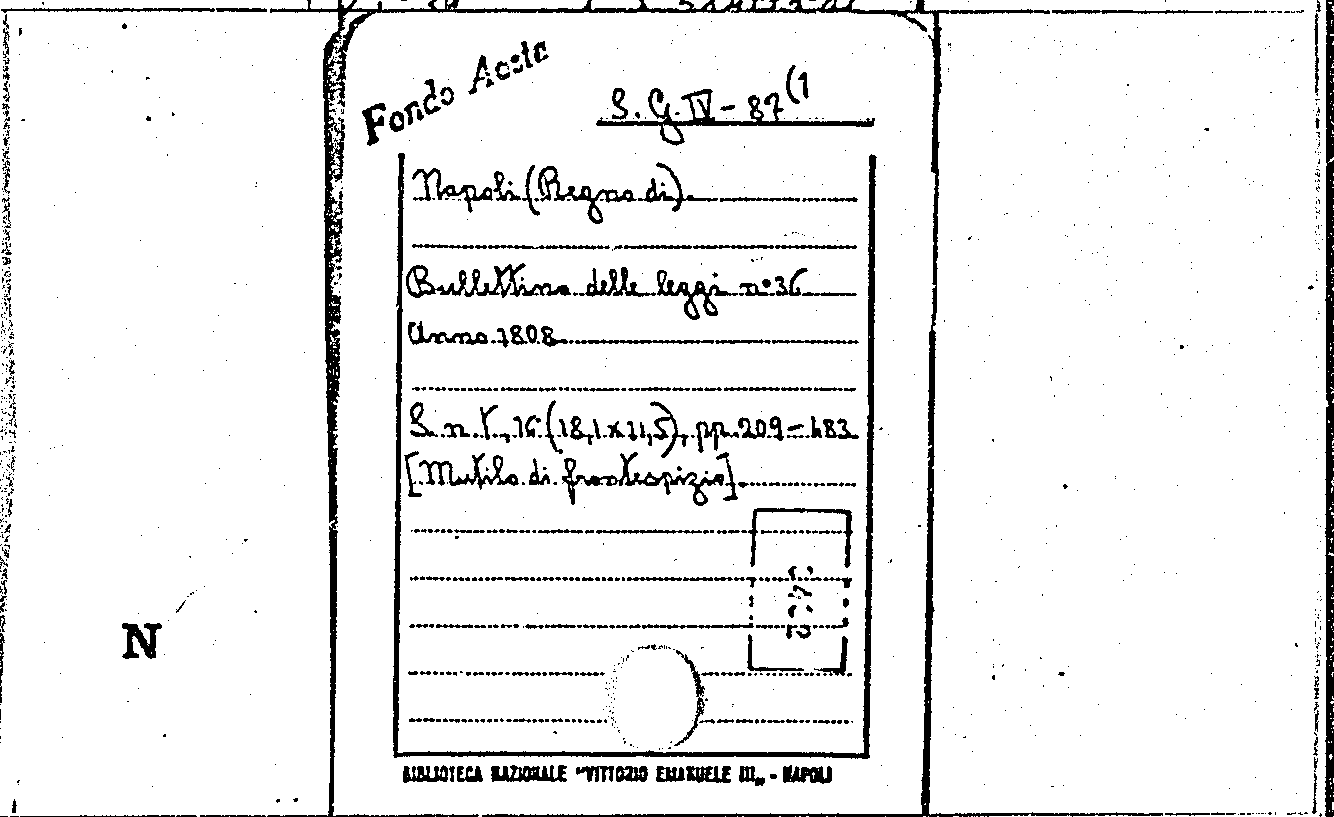 Fondo Aosta
S. G. IV - 87(1
Napoli (Regno di).
Bullettino delle leggi n° 36
Anno 1808
S. n. T., 16 (18,1 x 11,5), pp. 209 - 483
[Mutilo di frontespizio].
N
BIBLIOTECA NAZIONALE "VITTORIO EMANUELE III„ - NAPOLI